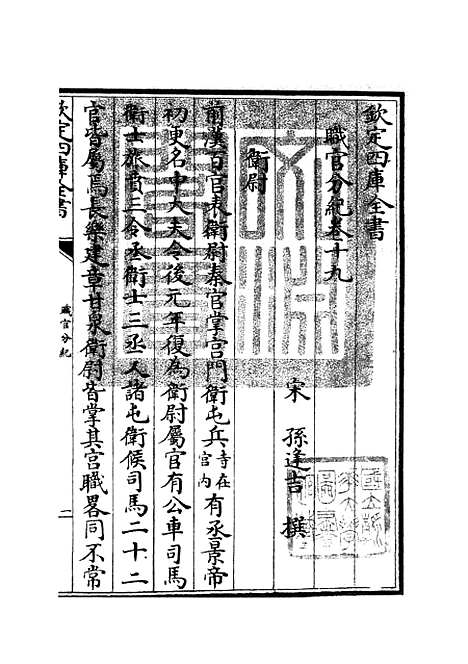 欽定四庫全書
職官分紀卷十九
宋 孫逢吉 撰
衛尉
前漢百官表衛尉秦官掌宮門衛屯兵寺在宮內有丞景帝
初更名中大夫令後元年復為衛尉屬官有公車司馬
衛士旅賁三令丞衛士三丞人諸屯衛候司馬二十二
官皆屬焉長樂建章甘泉衛尉皆掌其宮職畧同不常
欽定四庫全書
職官分紀